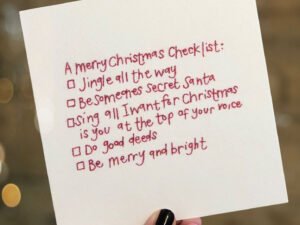 A Merry Christmas Checklist:
Jingle all the way
Be someones secret Santa
Sing all I want for Christmas
is you at the top of your voice
Do good deeds
Be merry and bright